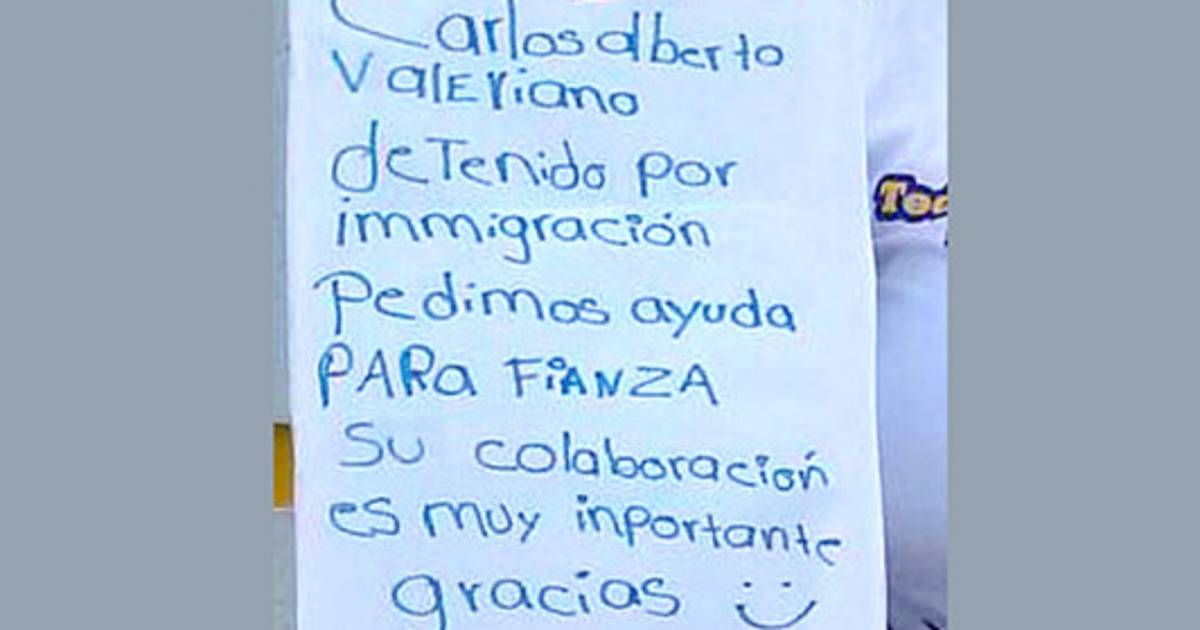 Carlos alberto
Valeriano
detenido por
immigración
Pedimos ayuda
PARa FiANZA
Su colaboración
es muy inportante
gracias